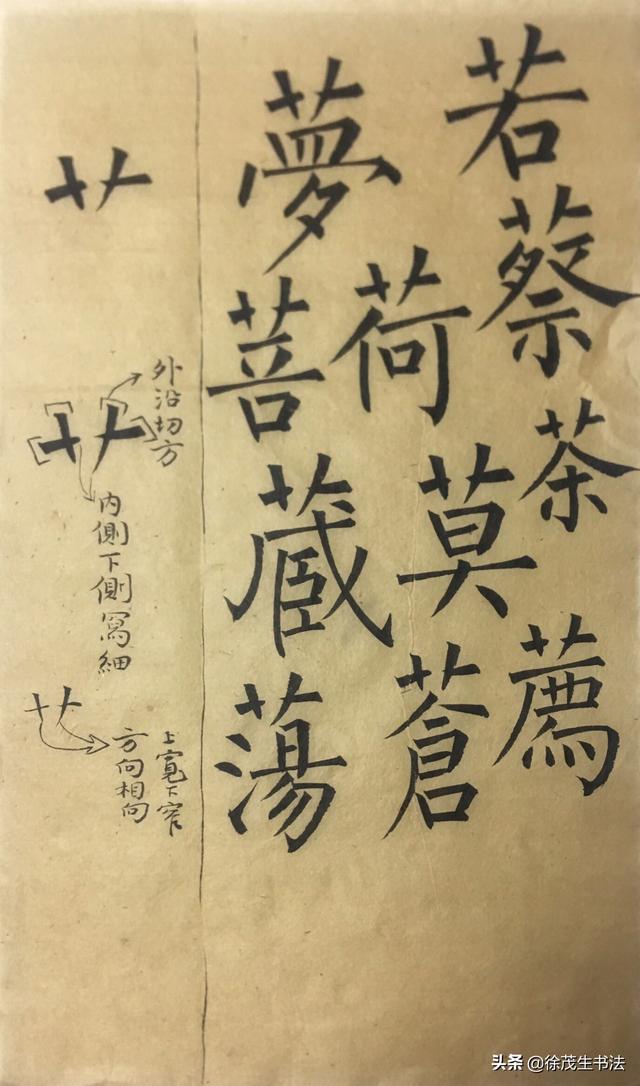 若
蔡
茶
薦
荷
莫
蒼
夢
菩
蔵
蕩
艹
外沿切方
艹
内側下側寫細
艹
上寬下窄
方向相向
头条 @徐茂生书法